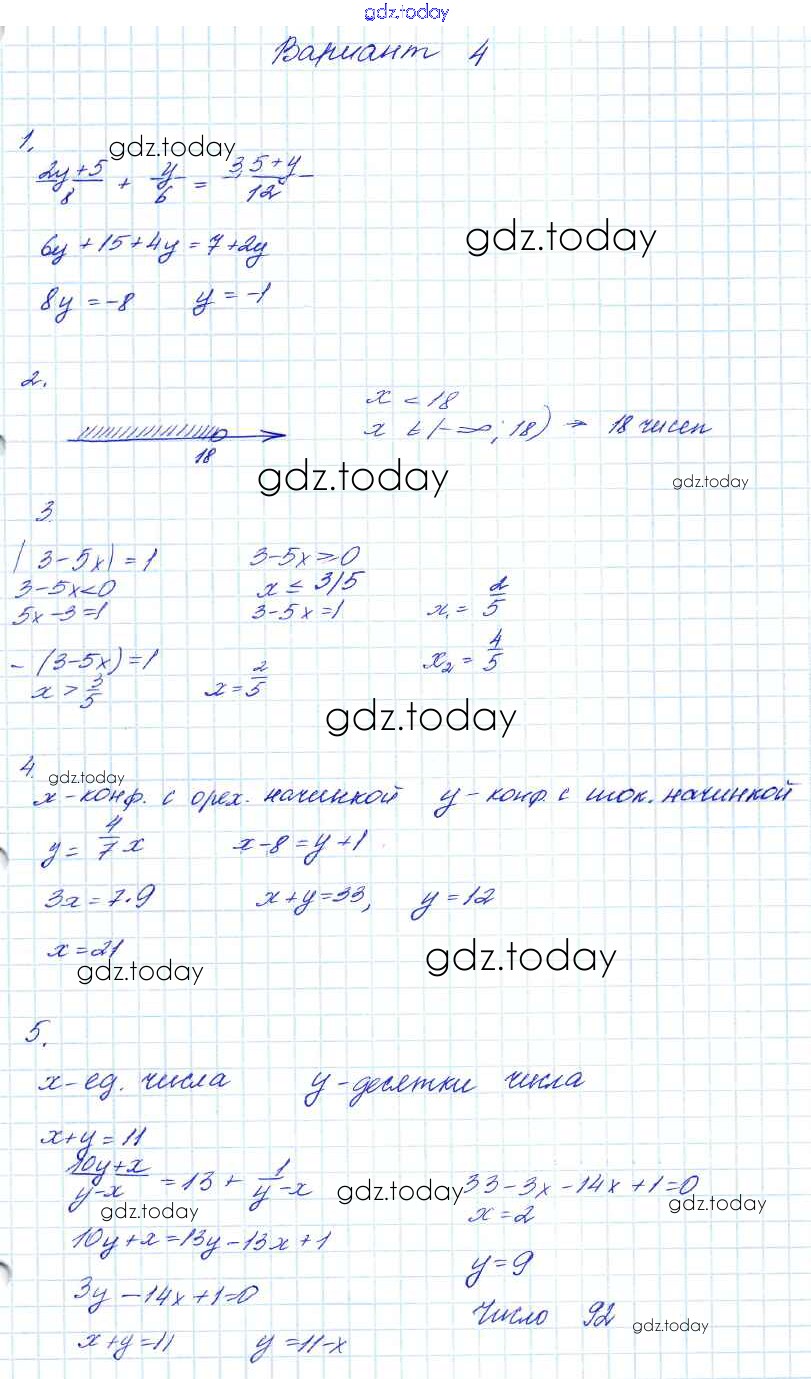 gdz.today
Вариант 4
1. gdz.today
(2y+5)/8 + y/6 = (3,5+y)/12
gdz.today
6y+15+4y=7+2y
8y=-8 y=-1
2.
x < 18
18 x ∈ (-∞; 18) → 18 чисел
gdz.today gdz.today
3.
|3-5x|=1 3-5x≥0
3-5x<0 x ≤ 3/5
5x-3=1 3-5x=1 x₁ = 2/5
-(3-5x)=1 x₂ = 4/5
x > 3/5 x = 2/5
gdz.today
4. gdz.today
x-конф. с орех. начинкой y-конф. с шок. начинкой
y = 4/7 x x-8=y+1
3x=7·9 x+y=33, y=12
x=21
gdz.today gdz.today
5.
x-ед. числа y-десятки числа
x+y=11
(10y+x)/(y-x) = 13 + 1/(y-x) gdz.today 33-3x-14x+1=0
gdz.today x=2 gdz.today
10y+x=13y-13x+1
y=9
3y-14x+1=0
Число 92 gdz.today
x+y=11 y=11-x